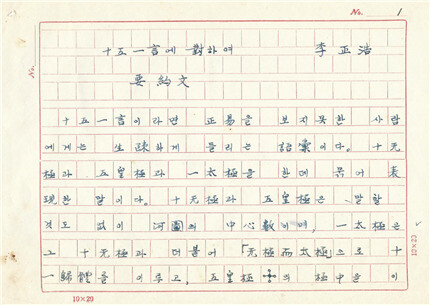 No. 1
十五一言에 對하여 李正浩
要約文
十五一言이라면 正易을 보지못한 사람
에게는 生疎하게 들리는 語彙이다. 十无
極과 五皇極과 一太極을 한데 묶어 表
現한 말이다. 十无極과 五皇極은 말할
것도 없이 河圖의 中心數이며, 一太極은
그 十无極과 더불어 「无極而太極」으로 十
一歸體를 이루고, 五皇極 의 極中을 이
No.
10×20
10×20